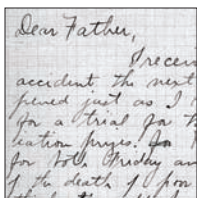 Dear Father,
I recei
accident the next
pened just as I
for a trial for
cation prizes. for
for both Friday an
of the death of poor